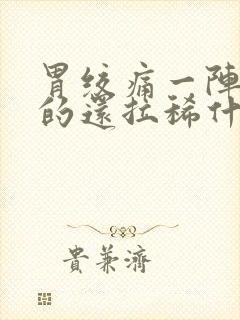 胃絞痛一陣
的還拉稀什
貴兼濟